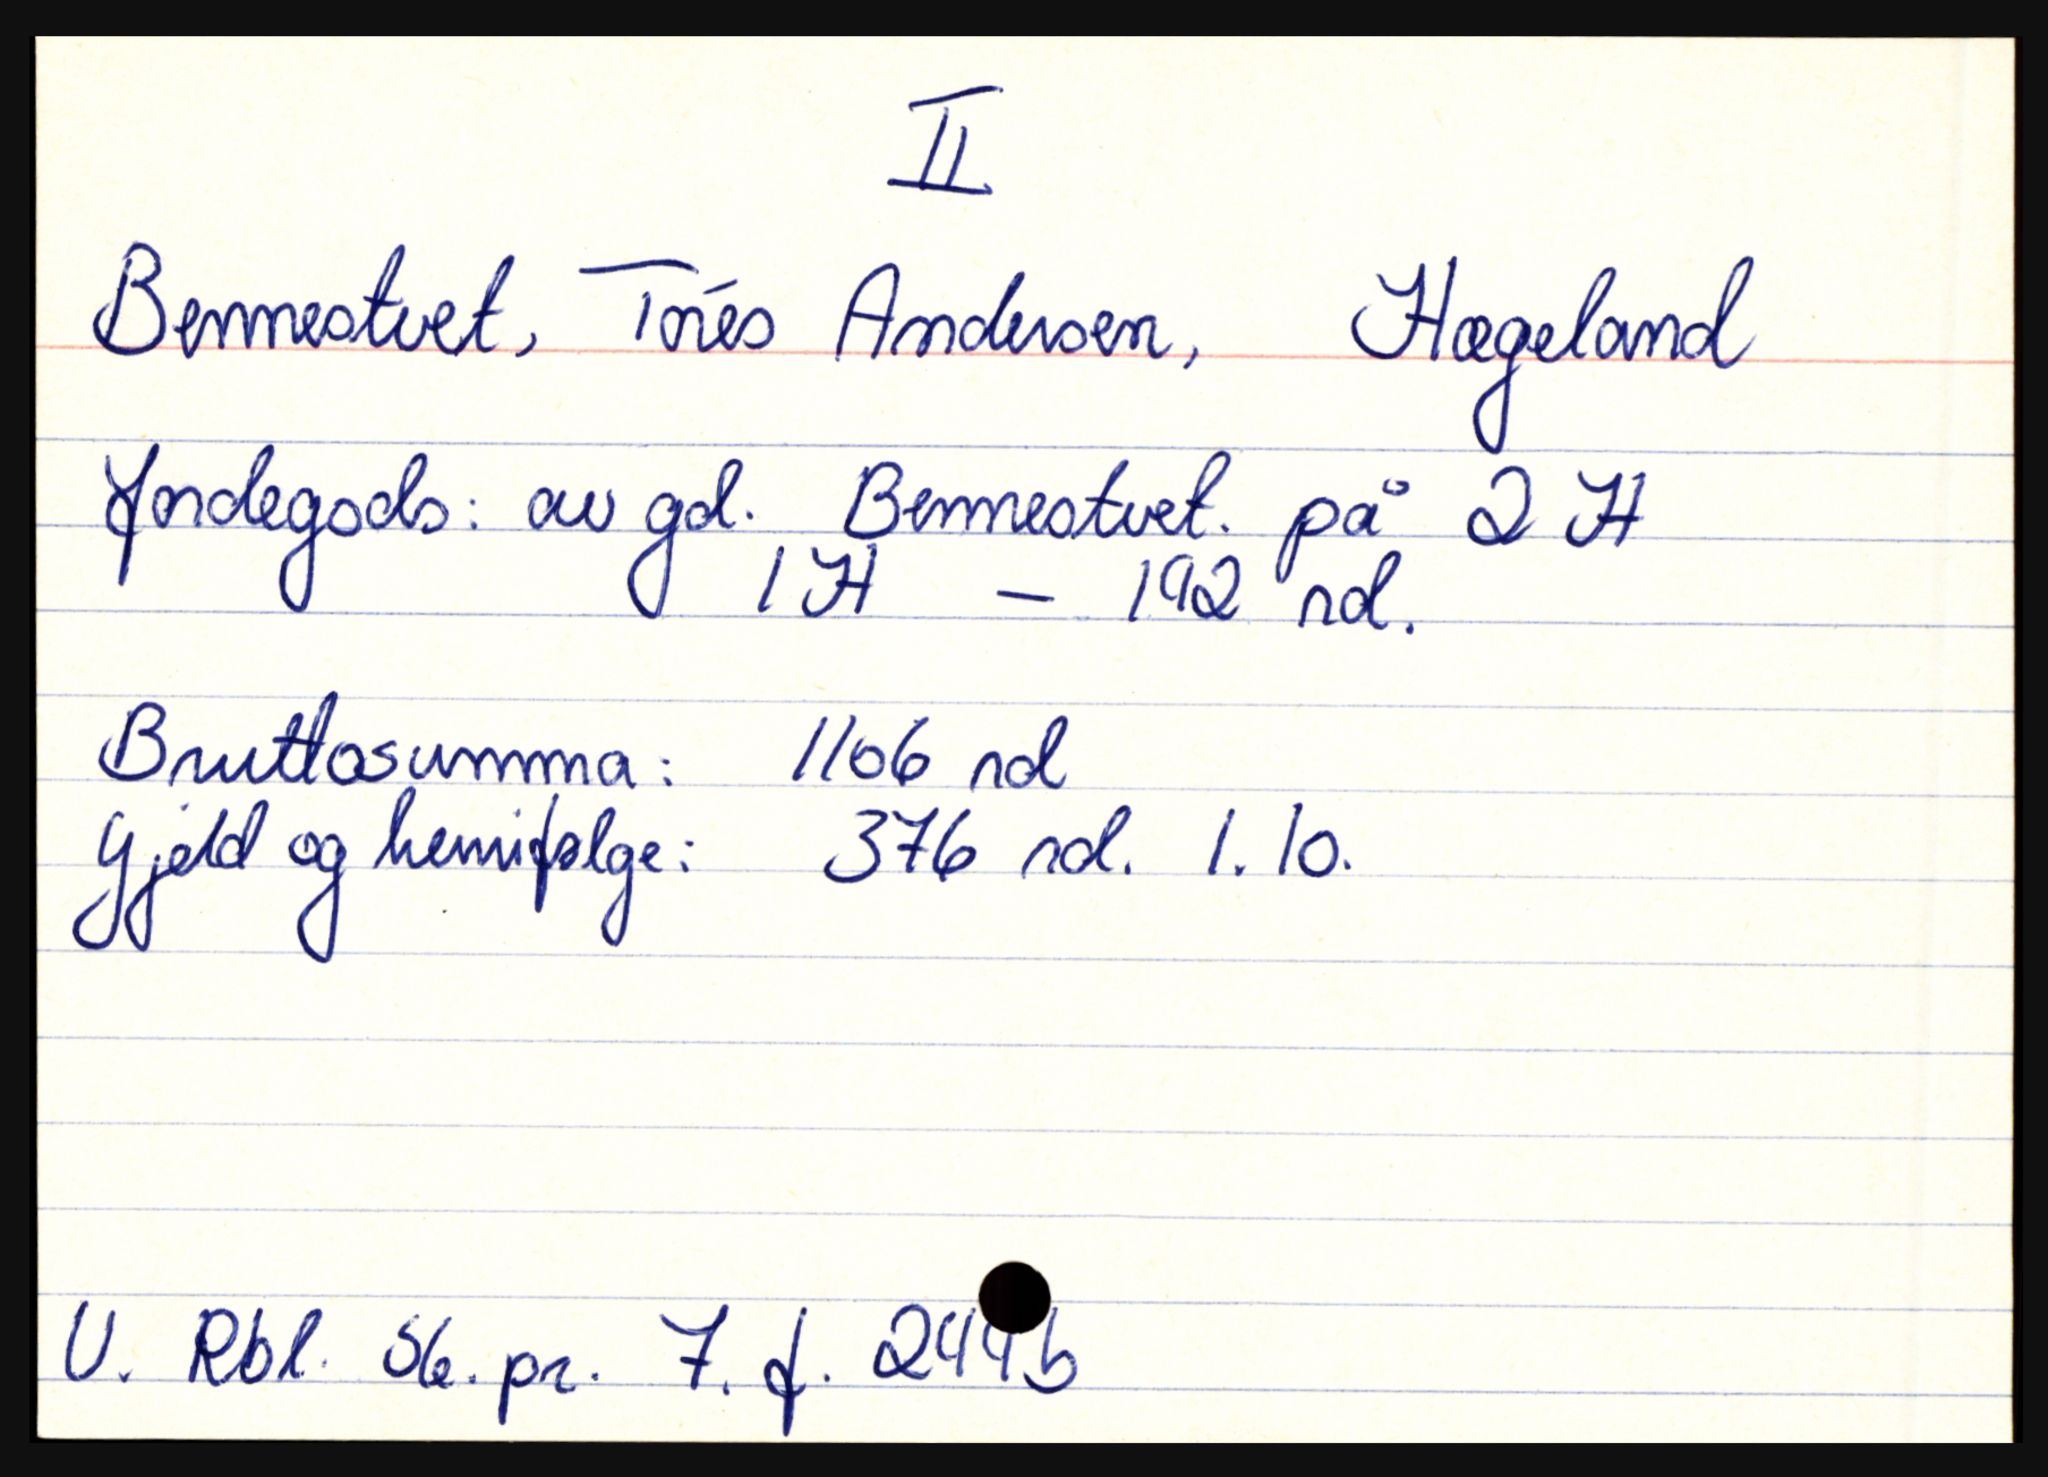 II
Bennestvet, Torés Andersen, Hægeland
Jordegods: av gd. Bennestvet. på 2 H
1 H – 192 rd.
Bruttosumma: 1106 rd
Gjeld og hemifølge: 376 rd. 1. 10.
V. Rbl. Sk. pr. 7. f. 244b